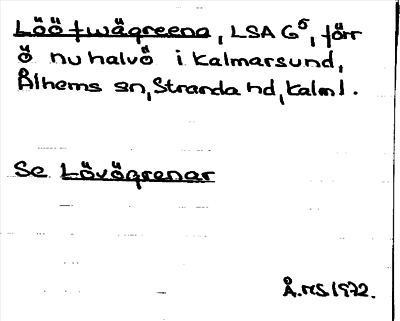 Lööfwägreena, LSA G⁵, förr
ö nu halvö i Kalmarsund,
Ålhems sn, Stranda hd, Kalm l.
Se Lövögrenar
Å.MS 1972.